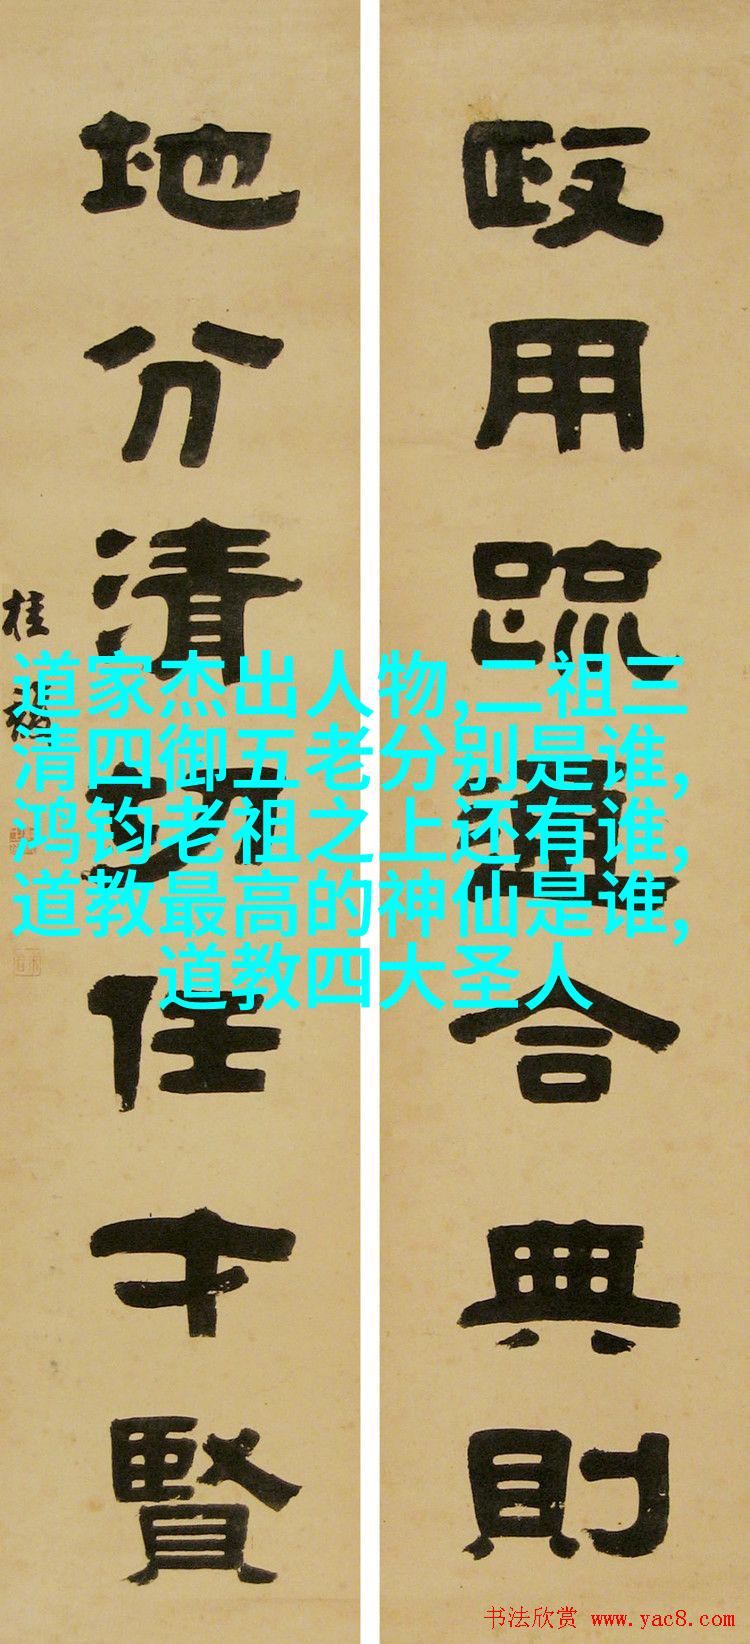 政用疏通合典則
地分清切任才賢
桂馥
道家杰出人物,二祖三
清四御五老分别是谁,
鸿钧老祖之上还有谁,
道教最高的神仙是谁,
道教四大圣人
书法欣赏 www.yac8.com